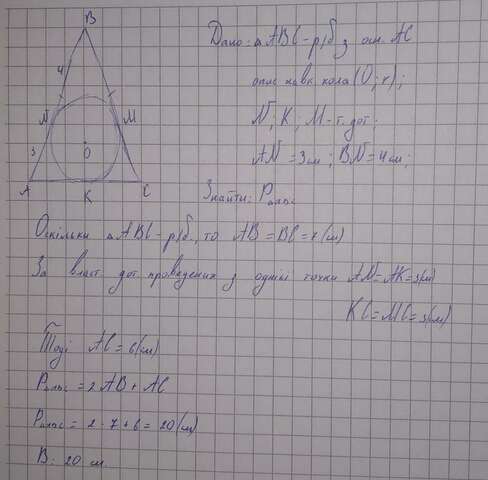 B
Дано: △ABC - р/б з осн. AC
4
опис навк. кола (O; r);
N M
N; K; M - т. дот.
O
3
AN = 3 см; BN = 4 см;
A K C
Знайти: P
Оскільки △ABC - р/б, то AB = BC = 7 (см)
За власт. дот. проведених з однієї точки AN = AK = 3 (см)
KC = MC = 3 (см)
Тоді AC = 6 (см)
P = 2AB + AC
P = 2 · 7 + 6 = 20 (см)
В: 20 см.